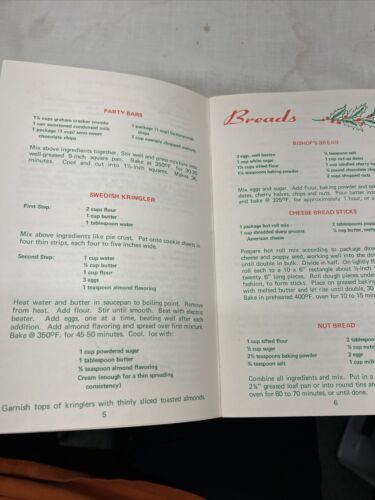 PARTY BARS
1⅓ cups graham cracker crumbs
1 can sweetened condensed milk
1 package (1 cup) semi-sweet
chocolate chips
1 package (1 cup) butterscotch
chips
1 cup coarsely chopped walnuts
Mix above ingredients together. Stir well and press mixture into
well-greased 9-inch square pan. Bake at 350°F. for 30-35
minutes. Cool and cut into 1½-inch squares. Makes 36.
SWEDISH KRINGLER
First Step:
2 cups flour
1 cup butter
1 tablespoon water
Mix above ingredients like pie crust. Pat onto cookie sheets in
four thin strips, each four to five inches wide.
Second Step:
1 cup water
½ cup butter
1 cup flour
3 eggs
1 teaspoon almond flavoring
Heat water and butter in saucepan to boiling point. Remove
from heat. Add flour. Stir until smooth. Beat with electric
beater. Add eggs, one at a time, beating well after each
addition. Add almond flavoring and spread over first mixture.
Bake @ 350°F. for 45-50 minutes. Cool. Ice with:
1 cup powdered sugar
1 tablespoon butter
½ teaspoon almond flavoring
Cream (enough for a thin spreading
consistency)
Garnish tops of kringlers with thinly sliced toasted almonds.
5
Breads
BISHOP'S BREAD
3 eggs, well beaten
1 cup white sugar
1½ cups sifted flour
1½ teaspoons baking powder
¼ teaspoon salt
1 cup cut-up dates
1 cup candied cherries
⅔ pound chocolate chips
2 cups chopped nuts
Mix eggs and sugar. Add flour, baking powder and salt
dates, cherry halves, chips and nuts. Pour
bake @ 325°F. for approximately 1 hour, or
CHEESE BREAD STICKS
1 package hot roll mix
1 cup shredded sharp process
American cheese
2 tablespoons poppy
¼ cup butter, melted
Prepare hot roll mix according to package direc
cheese and poppy seed, working well into the dough
until double in bulk. Divide in half. On lightly fl
roll each to a 10 x 6" rectangle about ½-inch
twenty 6" long pieces. Roll dough pieces under
fashion, to form sticks. Place on greased baking
with melted butter and let rise until double, 30
Bake in preheated 400°F. oven for 10 to 15 min
NUT BREAD
1 cup sifted flour
½ cup sugar
2½ teaspoons baking powder
¾ teaspoon salt
½ teaspoon
½ cup nuts
2 eggs
1 cup milk
Combine all ingredients and mix. Put in a
2⅝" greased loaf pan or into round tins and
oven for 60 to 70 minutes, or until done.
6